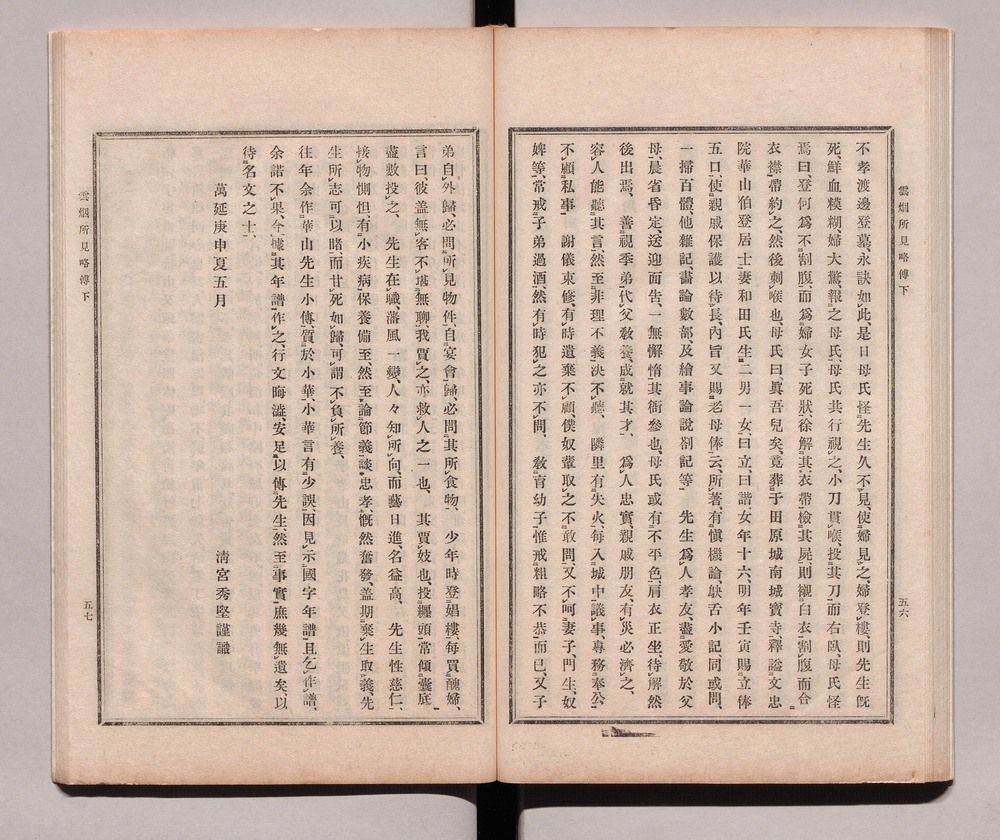 雲烟所見略傳下
五六
不孝渡邊登墓、永訣如此、是日母氏怪先生久不見、使婦見之、婦登樓、則先生旣
死、鮮血糢糊、婦大驚、報之母氏、母氏共行視之、小刀貫喉、投其刀而右臥、母氏怪
焉曰、登何爲不割腹、而爲婦女子死狀、徐解其衣帶、檢其屍、則襯白衣、割腹而合
衣襟帶約之、然後刺喉也、母氏曰眞吾兒矣、竟葬于田原城南城寶寺、釋諡文忠
院華山伯登居士、妻和田氏生二男一女、曰立、曰諧、女年十六、明年壬寅賜立俸
五口、使親戚保護以待長、內旨又賜老母俸云、所著有愼機論、鴃舌小記、同或問、
一掃百體、他雜記、畫論數部、及繪事論說剳記等、 先生爲人孝友、盡愛敬於父
母、晨省昏定、送迎面吿、一無懈惰、其衙參也、母氏或有不平色、肩衣正坐、待解然
後出焉、 善視季弟、代父敎養、成就其才、 爲人忠實、親戚朋友、有災必濟之、
容人能聽其言、然至非理不義、決不聽、 隣里有失火、每入城中議事、專務奉公、
不顧私事 謝儀束修、有時遺棄不顧、僕奴輩取之、不敢問、又不呵妻子、門生、奴
婢等、常戒子弟過酒、然有時犯之亦不問、 敎育幼子、惟戒粗略不恭而已、又子
弟自外歸、必問所見物件、自宴會歸、必問其所食物、 少年時登娼樓、每買醜婦、
言曰彼盖無客、不堪無聊、我買之、亦救人之一也、 其買妓也、投纏頭常傾囊底
盡數投之、 先生在職、藩風一變、人々知所向、而藝日進、名益高、 先生性慈仁、
接物惻怛、有小疾病保養備至、然至論節義、談忠孝、慨然奮發、盖期棄生取義、先
生所志可以睹、而甘死如歸、可謂不負所養、
往年余作華山先生小傳、質於小華、小華言有少誤、因見示國字年譜、且乞作譜、
余諾不果、今據其年譜作之、行文晦澁、安足以傳先生、然至事實、庶幾無遺矣、以
待名文之士、
萬延庚申夏五月
淸宮秀堅謹識
雲烟所見略傳下
五七